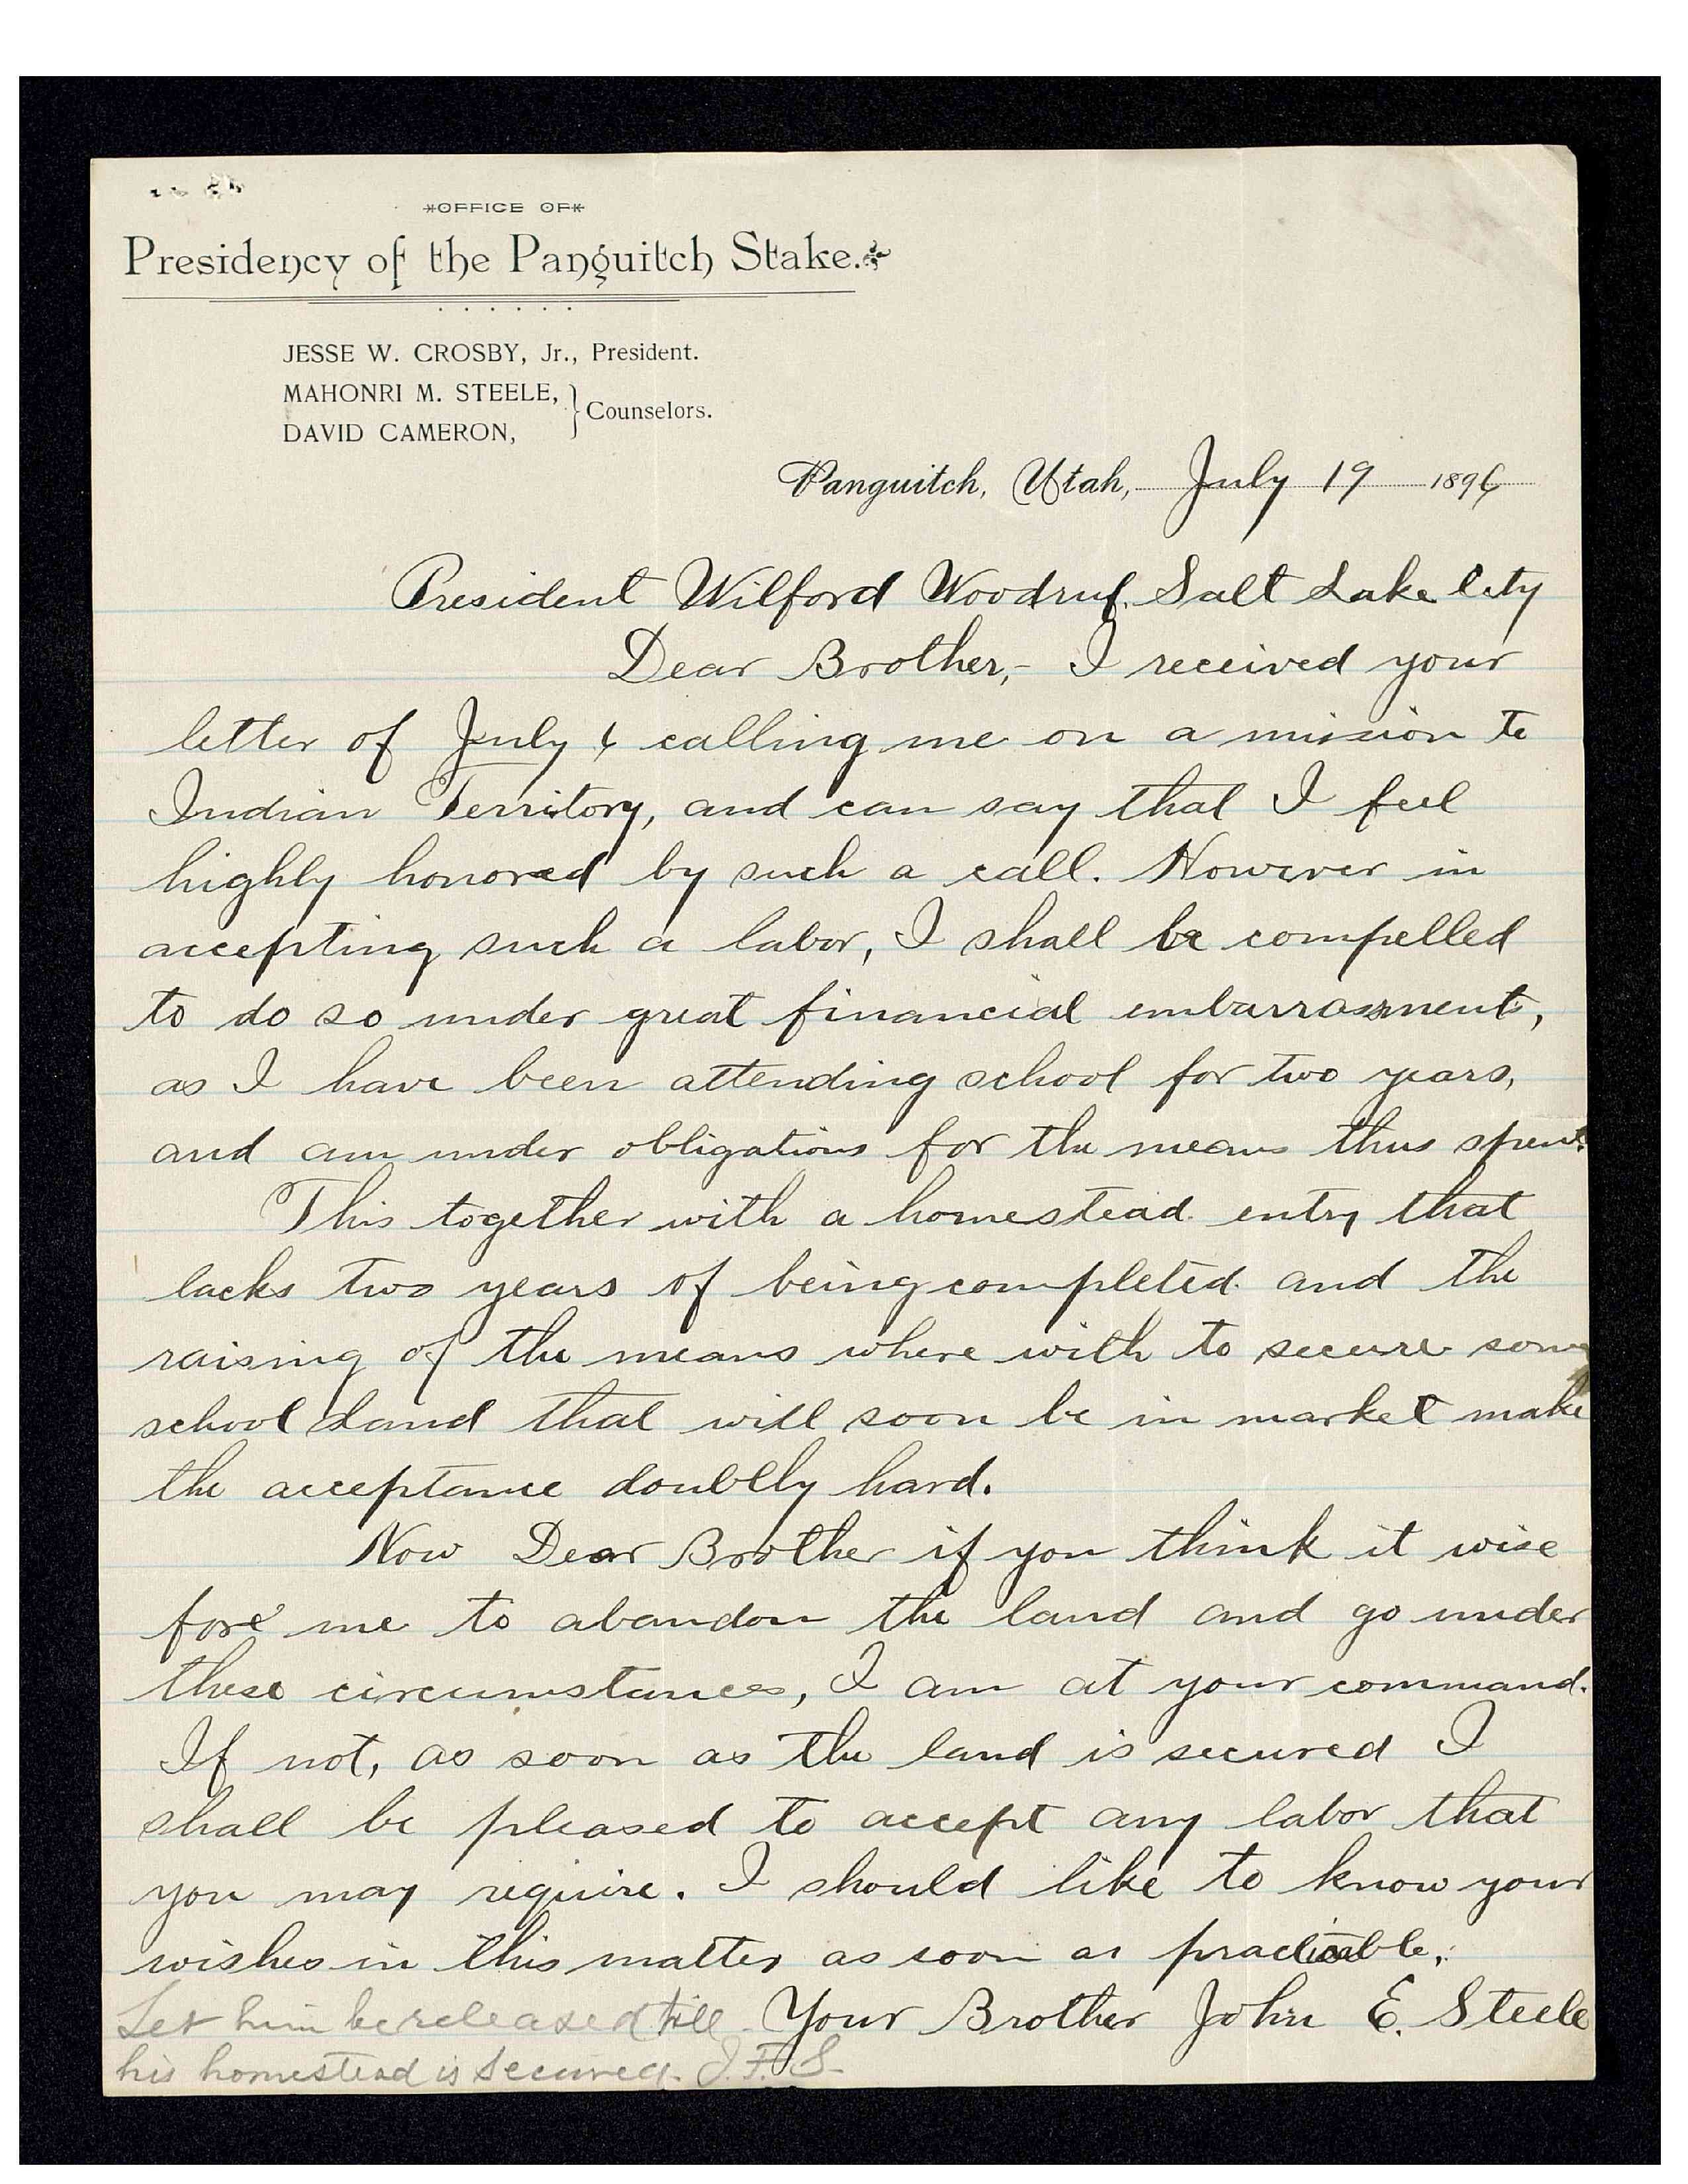 *OFFICE OF*
Presidency of the Panguitch Stake.
JESSE W. CROSBY, Jr., President.
MAHONRI M. STEELE,
DAVID CAMERON,
} Counselors.
Panguitch, Utah, July 19 1896
President Wilford Woodruf. Salt Lake City
Dear Brother,- I received your
letter of July 6 calling me on a mission to
Indian Territory, and can say that I feel
highly honored by such a call. However in
accepting such a labor, I shall be compelled
to do so under great financial embarrassment,
as I have been attending school for two years,
and am under obligations for the means thus spent.
This together with a homestead entry that
lacks two years of being completed and the
raising of the means where with to secure some
school land that will soon be in market make
the acceptance doubly hard.
Now Dear Brother if you think it wise
fore me to abandon the land and go under
these circumstances, I am at your command.
If not, as soon as the land is secured I
shall be pleased to accept any labor that
you may require. I should like to know your
wishes in this matter as soon as practicable.
Your Brother John E. Steele
Let him be released till
his homestead is secured. J. F. S.